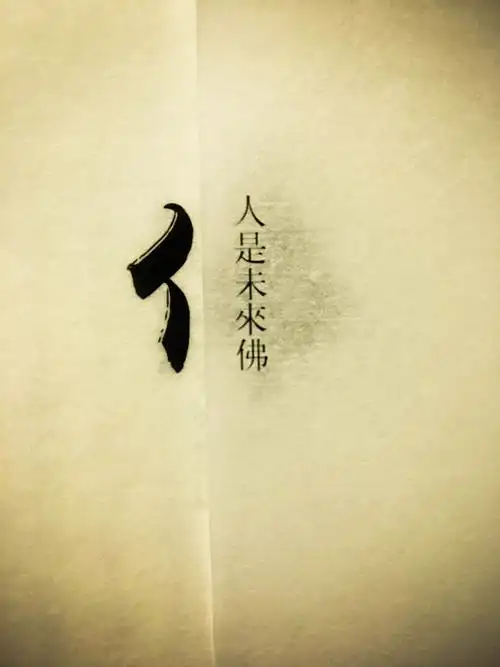 亻
人是未來佛